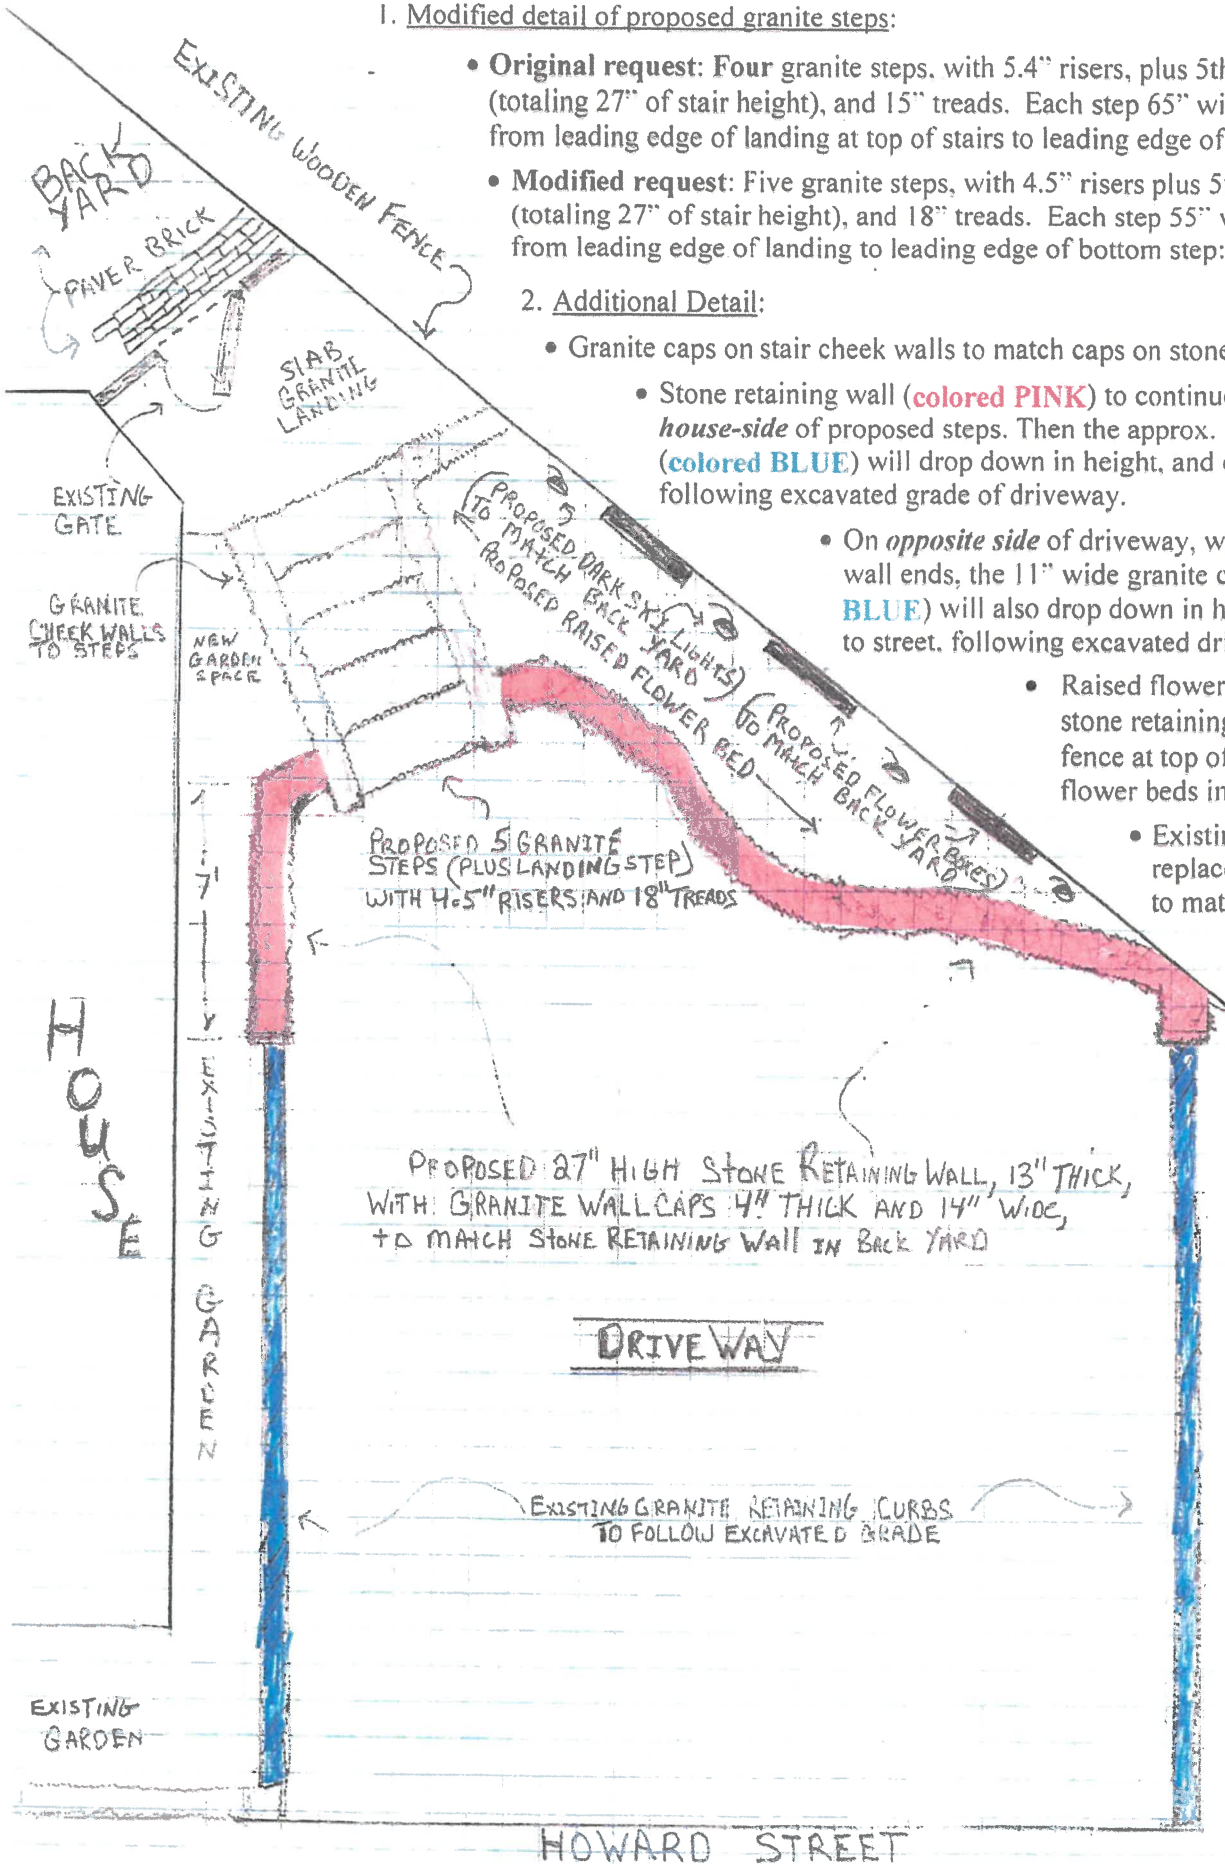 1. Modified detail of proposed granite steps:
• Original request: Four granite steps, with 5.4" risers, plus 5th
(totaling 27" of stair height), and 15" treads. Each step 65" wi
from leading edge of landing at top of stairs to leading edge of
• Modified request: Five granite steps, with 4.5" risers plus 5
(totaling 27" of stair height), and 18" treads. Each step 55"
from leading edge of landing to leading edge of bottom step:
2. Additional Detail:
• Granite caps on stair cheek walls to match caps on stone
• Stone retaining wall (colored PINK) to continu
house-side of proposed steps. Then the approx.
(colored BLUE) will drop down in height, and
following excavated grade of driveway.
• On opposite side of driveway, w
wall ends, the 11" wide granite c
BLUE) will also drop down in h
to street, following excavated dri
• Raised flower
stone retaining
fence at top of
flower beds in
• Existin
replac
to mat
EXISTING WOODEN FENCE
BACK
YARD
PAVER BRICK
SLAB
GRANITE
LANDING
EXISTING
GATE
GRANITE
CHEEK WALLS
TO STEPS
NEW
GARDEN
SPACE
(PROPOSED DARK SKY LIGHTS)
TO MATCH BACK YARD
PROPOSED RAISED FLOWER BED
(PROPOSED FLOWER BOXES)
TO MATCH BACK YARD
7'
PROPOSED 5 GRANITE
STEPS (PLUS LANDING STEP)
WITH 4.5" RISERS AND 18" TREADS
HOUSE
EXISTING GARDEN
PROPOSED 27" HIGH STONE RETAINING WALL, 13" THICK,
WITH GRANITE WALL CAPS 4" THICK AND 14" WIDE,
TO MATCH STONE RETAINING WALL IN BACK YARD
DRIVEWAY
EXISTING GRANITE RETAINING CURBS
TO FOLLOW EXCAVATED GRADE
EXISTING
GARDEN
HOWARD STREET